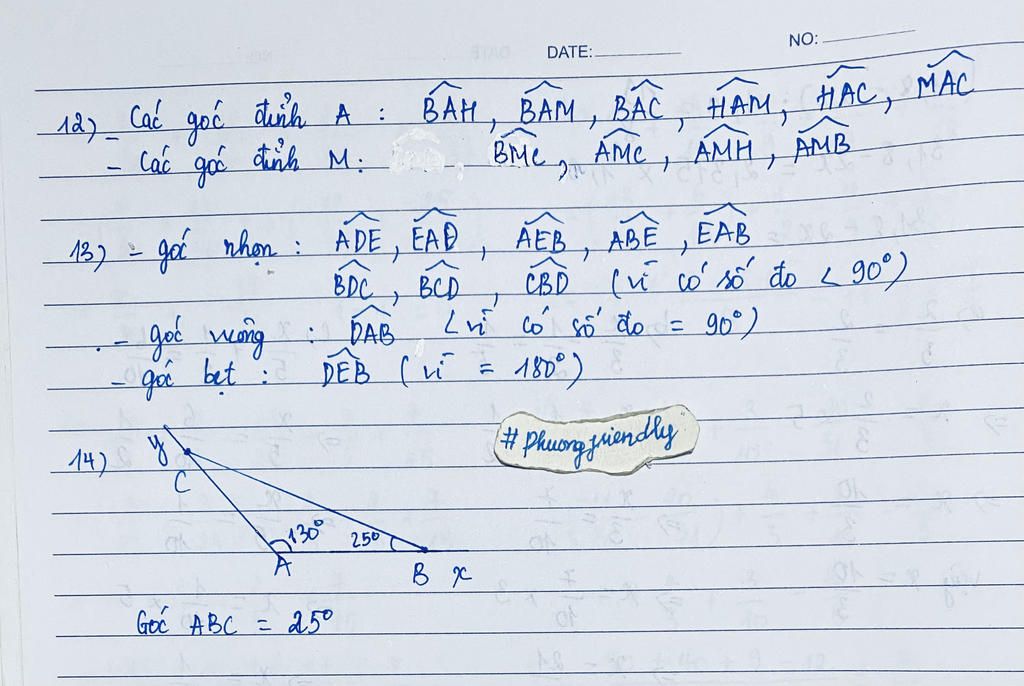 DATE: NO:
12) - Các góc đỉnh A : BAH, BAM, BAC, HAM, HAC, MAC
- Các góc đỉnh M: BMC, AMC, AMH, AMB
13) - góc nhọn : ADE, EAD, AEB, ABE, EAB
BDC, BCD, CBD (vì có số đo < 90°)
- góc vuông : DAB (vì có số đo = 90°)
- góc bẹt : DEB (vì = 180°)
#phuongfriendly
14) y
C
130° 25°
A B x
Góc ABC = 25°